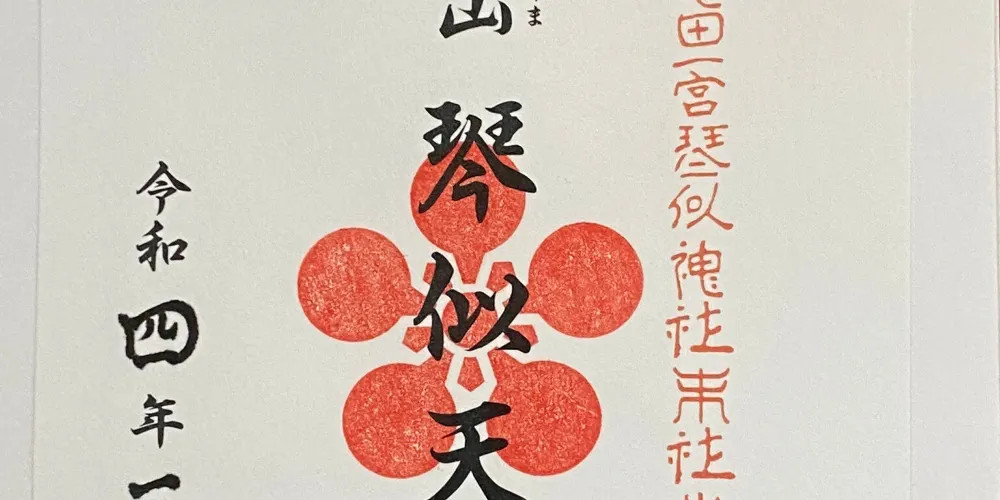 一宮琴似神社末社
山琴似天
ま
令和四年一